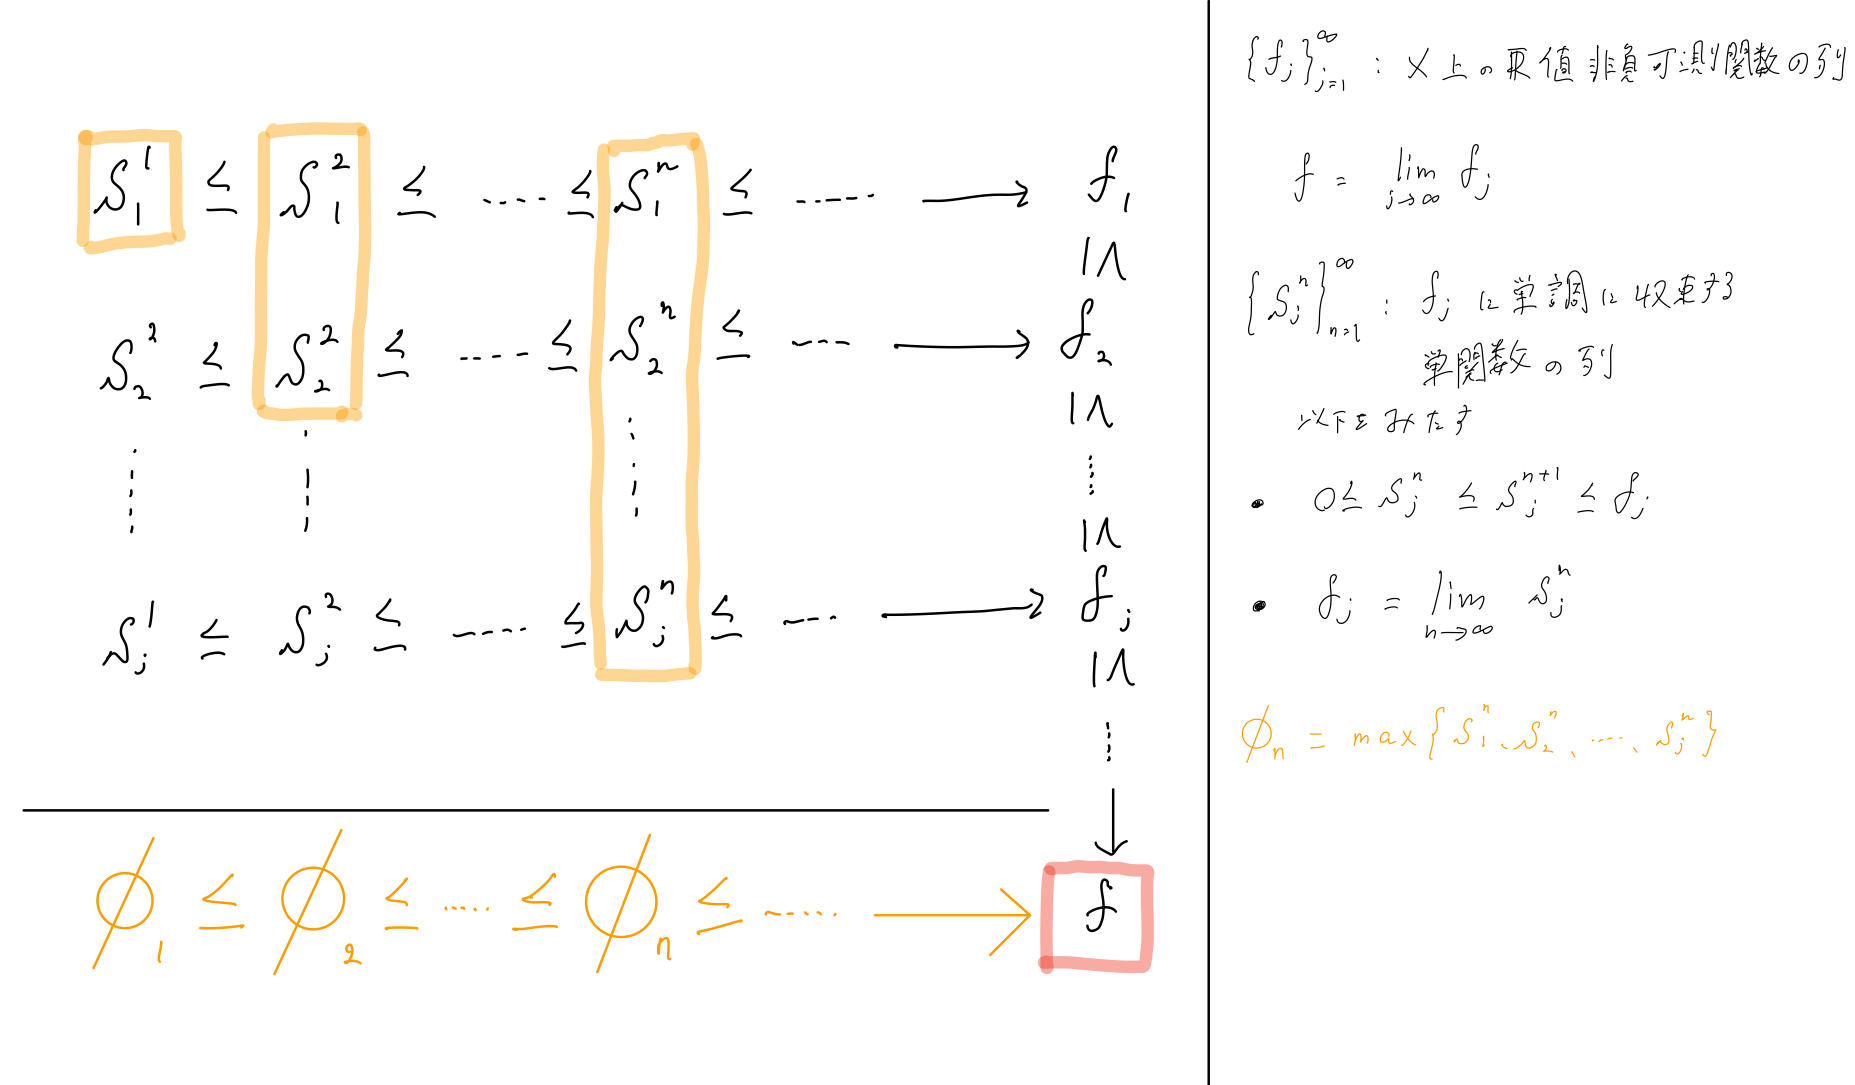 S_1^1 ≤ S_1^2 ≤ ..... ≤ S_1^n ≤ ..... → f_1
I∧
S_2^2 ≤ S_2^2 ≤ ..... ≤ S_2^n ≤ ..... → f_2
I∧
I∧
S_j^1 ≤ S_j^2 ≤ ..... ≤ S_j^n ≤ ..... → f_j
I∧
↓
f
φ_1 ≤ φ_2 ≤ ..... ≤ φ_n ≤ ..... →
{f_j}_{j=1}^∞ : X上の\overline{R}値非負可測関数の列
f = lim_{j→∞} f_j
{S_j^n}_{n=1}^∞ : f_j に単調に収束する
単関数の列
以下をみたす
• 0 ≤ S_j^n ≤ S_j^{n+1} ≤ f_j
• f_j = lim_{n→∞} S_j^n
φ_n = max{S_1^n、S_2^n、.....、S_j^n}